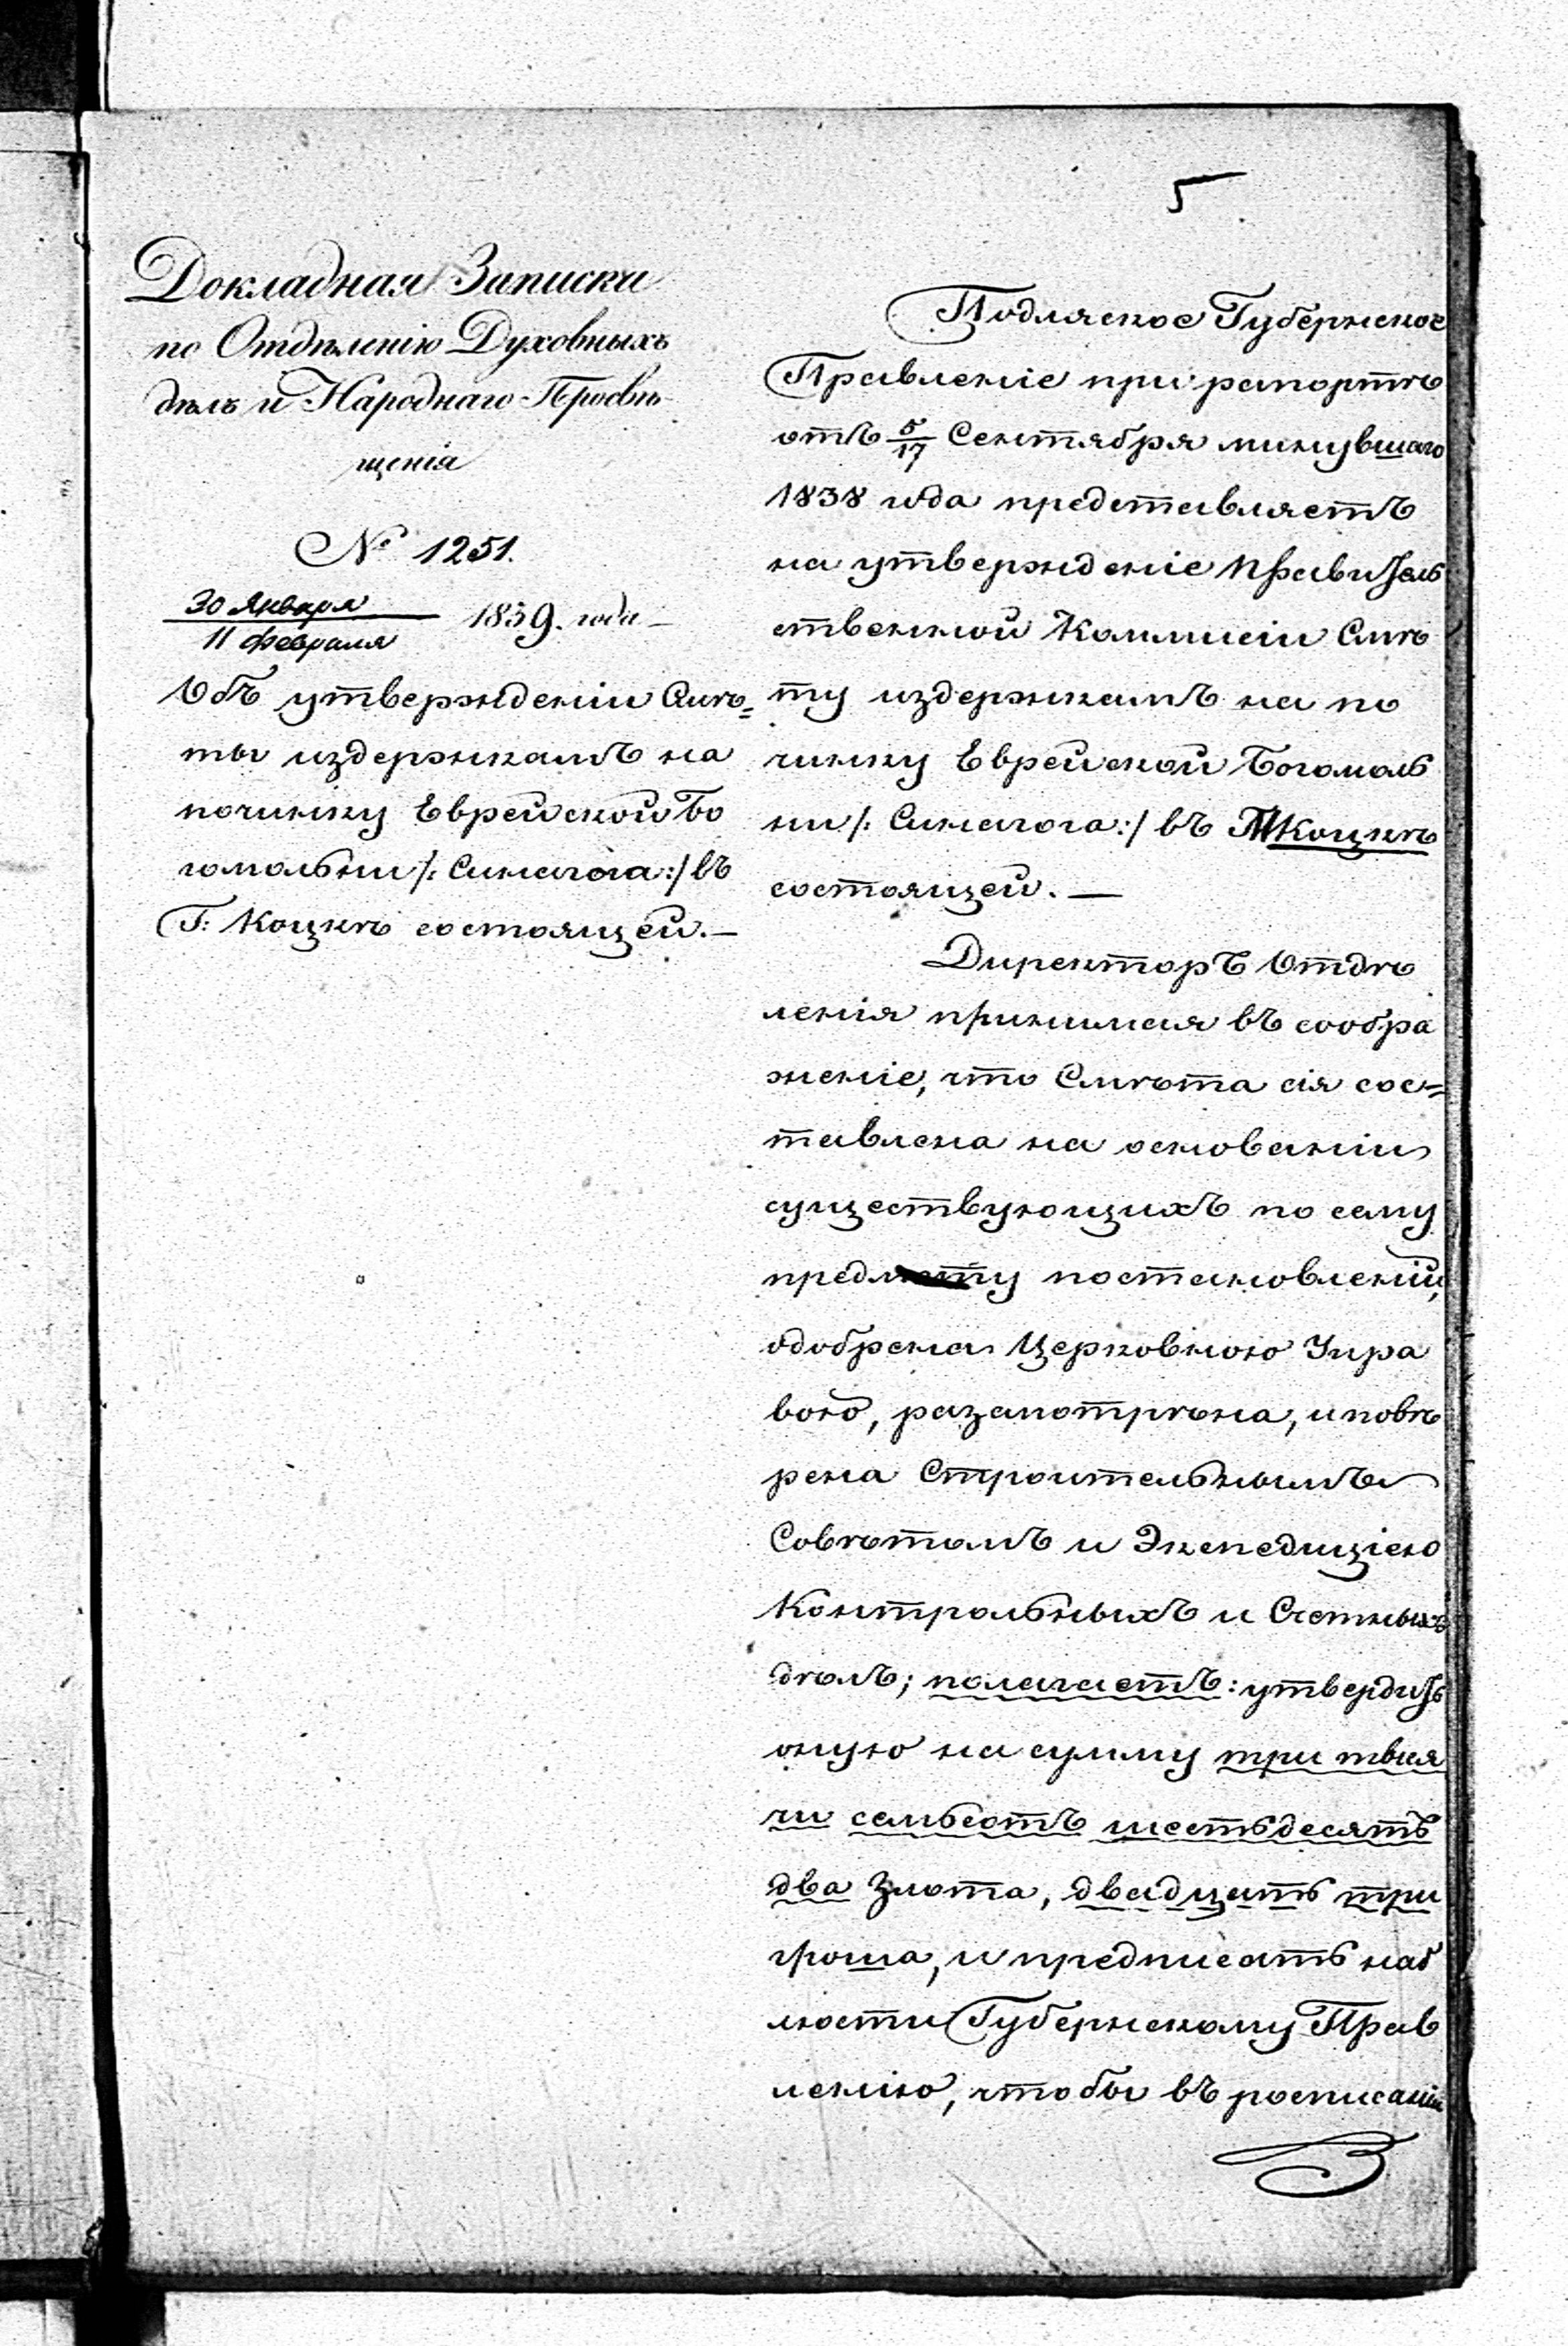 5
Докладная Записка
по Отдѣленію Духовныхъ
дѣлъ и Народнаго Просвѣ
щенія
№ 1251.
30 Января
11 Февраля 1839. года —
Объ утвержденіи Смѣ=
ты издержкамъ на
починку Еврейской Бо
гомольни /: Синагога :/ въ
Г: Коцкѣ состоящей. —
Подляское Губернское
Правленіе при рапортѣ
отъ 5/17 Сентября минувшаго
1838 года представляетъ
на утвержденіе Правитель
ственной Коммисіи Смѣ
ту издержкамъ на по
чинку Еврейской Богомоль
ни /: Синагога :/ въ Г Коцкѣ
состоящей. —
Директоръ Отдѣ
ленія принимая въ сообра
женіе, что Смѣта сія сос=
тавлена на основаніи
существующихъ по сему
предмету постановленій,
одобрена Церковною Упра
вою, разсмотрѣна, и повѣ
рена Строительнымъ
Совѣтомъ и Экспедиціею
Контрольныхъ и Счетныхъ
дѣлъ; полагаетъ: утвердить
оную на сумму три тыся
чи семьсотъ шестьдесятъ
два злота, двадцать три
гроша, и предписать
Губернскому Прав
ленію, чтобы въ росписаніи